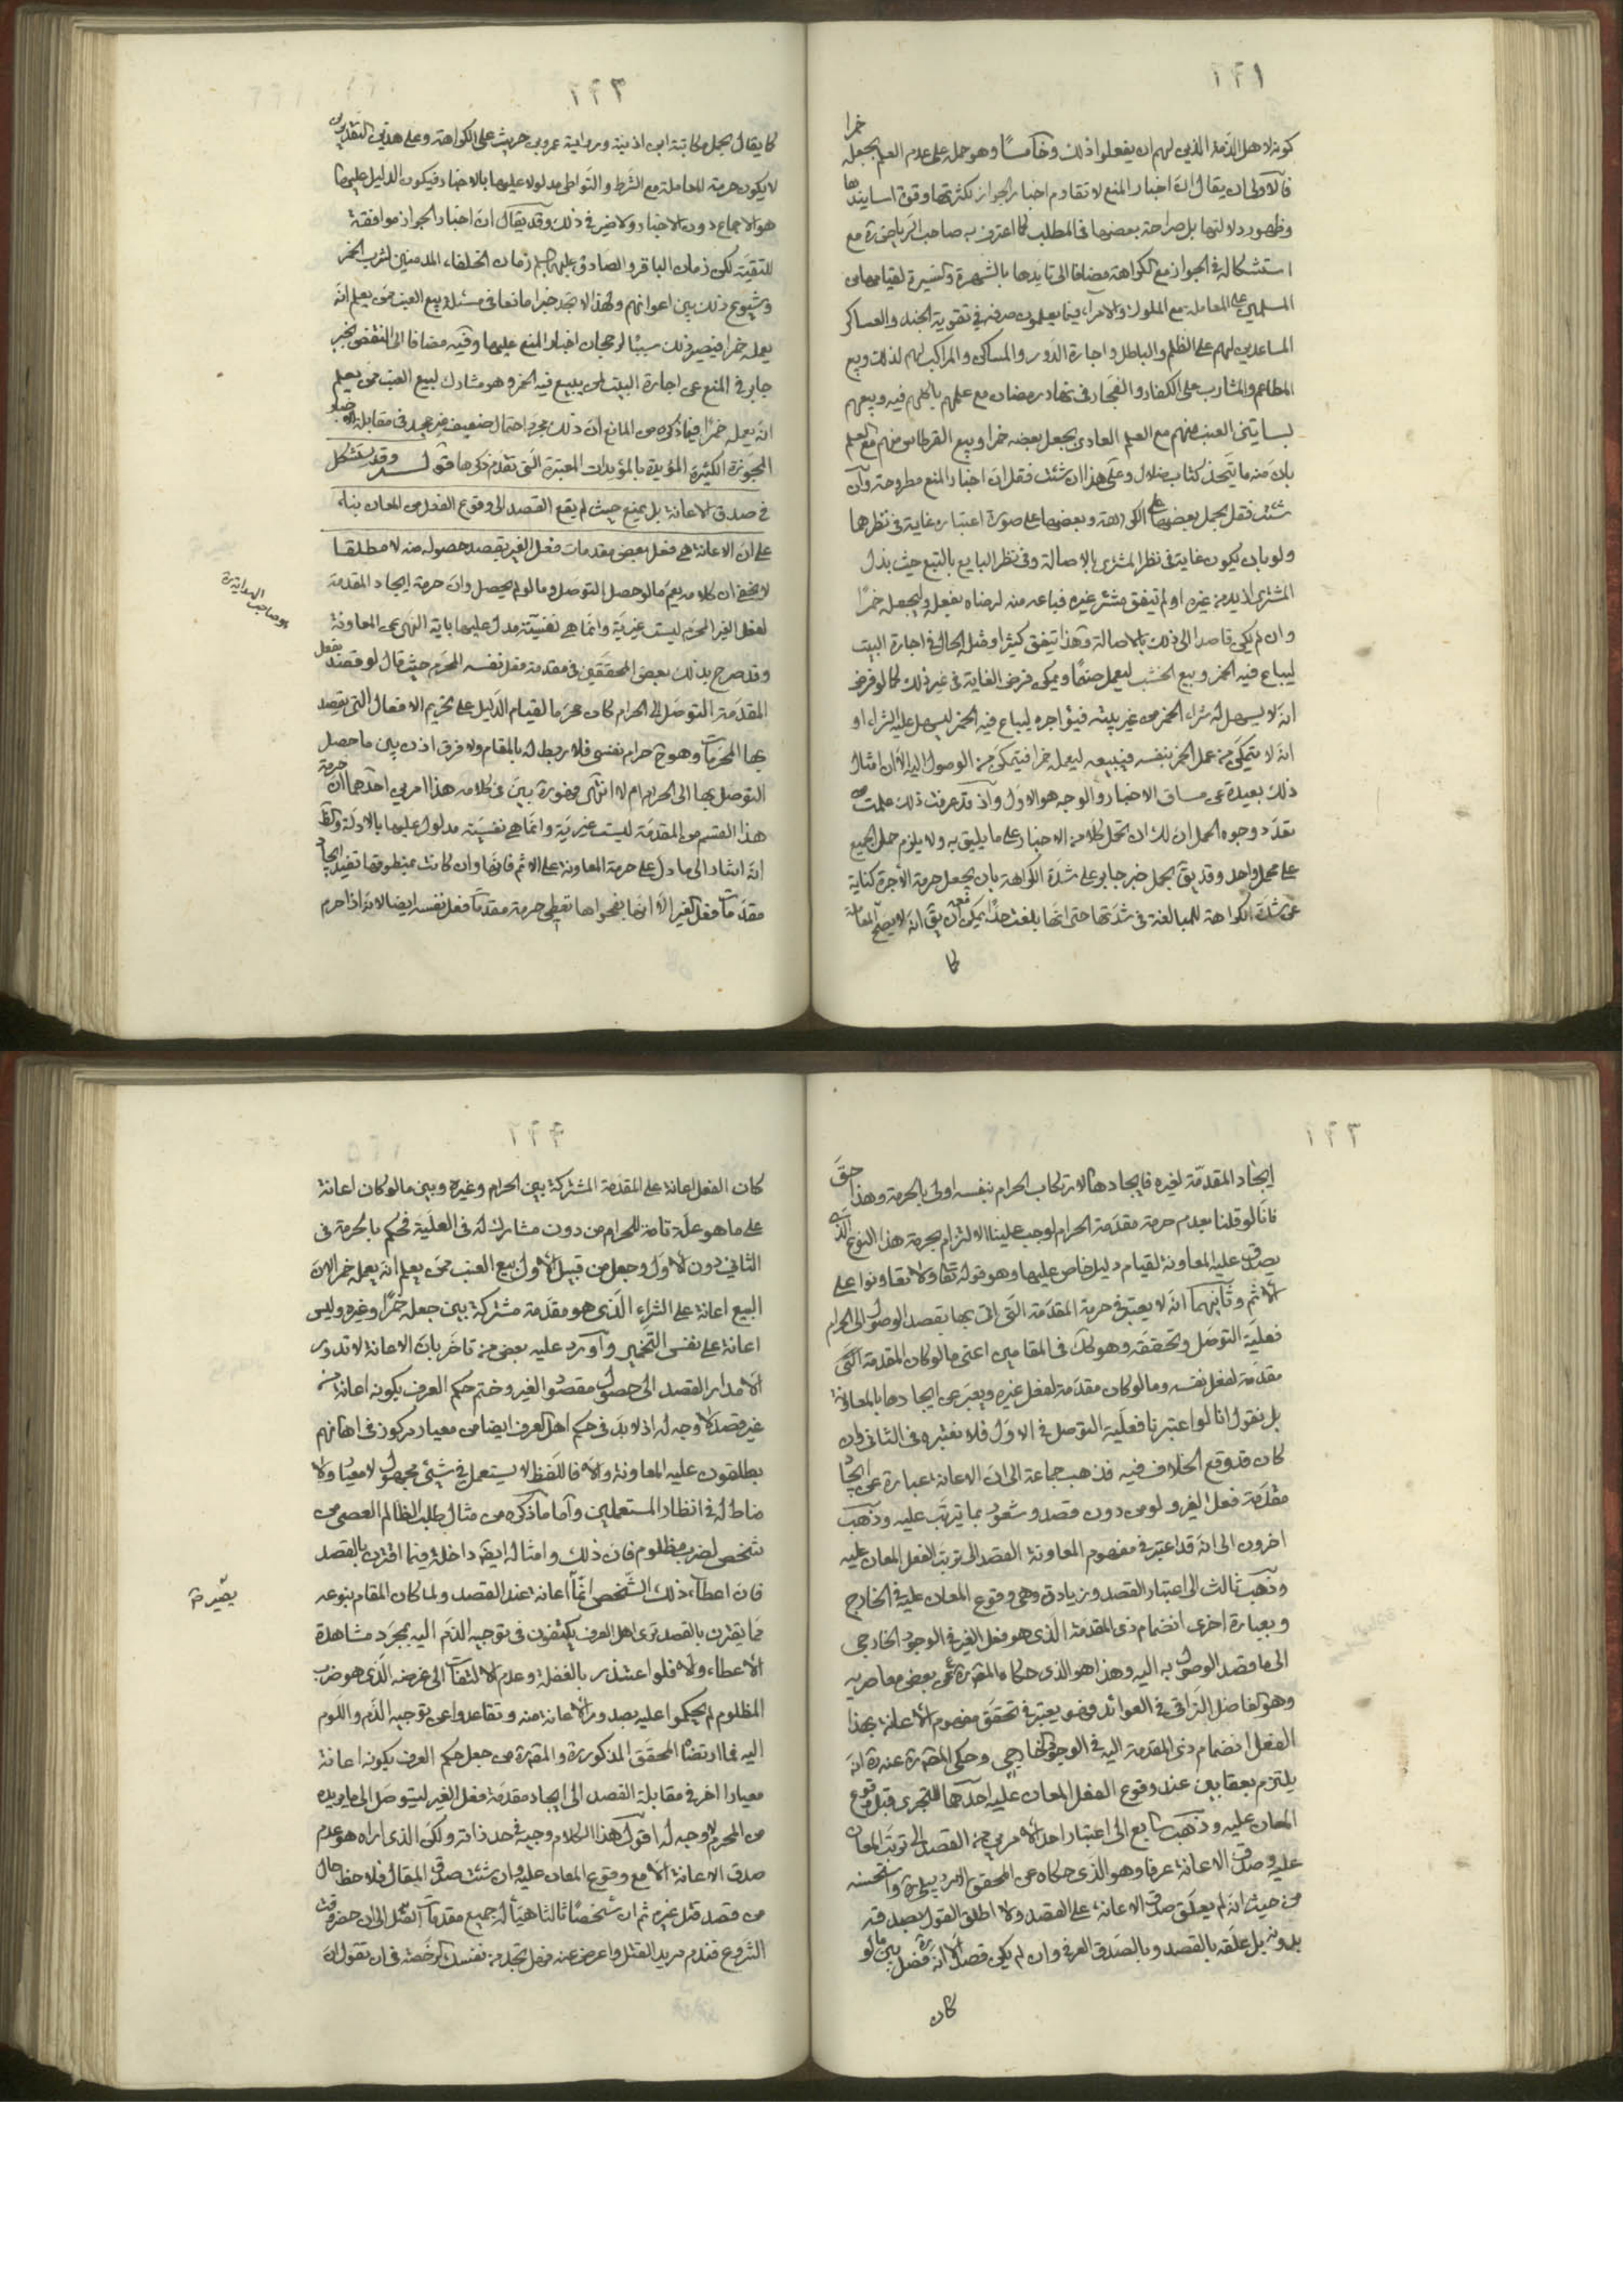 ١٩١
خمرا
كونه لاهل الذمة الذين لهم ان يفعلوا ذلك وخامسًا وهو حمله على عدم العلم بجعله
فالاولى ان يقال ان اخبار المنع لا تقاوم اخبار الجواز لكثرتها وقوة اسانيدها
وظهور دلالتها بل صراحة بعضها في المطلب كما اعترف به صاحب الرياض ره مع
استشكاله في الجواز مع الكراهة مضافا الى تايدها بالشهرة والسيرة لقيامها من
المسلمين على المعاملة مع الملوك والامراء فيما يعلمون صرفه في تقوية الجند والعساكر
المساعدين لهم على الظلم والباطل واجارة الدور والمساكن والمراكب لهم لذلك وبيع
المطاعم والمشارب على الكفار والفجار في نهار رمضان مع علمهم باكلهم فيه وبيعهم
بساتين العنب منهم مع العلم العادي بجعل بعضه خمرا وبيع القرطاس منهم مع العلم
بان منه ما يتخذ كتاب ضلال وعلى هذا ان شئت فقل ان اخبار المنع مطروحة وان
شئت فقل يحمل بعضها على الكراهة وبعضها على صورة اعتباره غاية في نظرهما
ولو بان يكون غاية في نظر المشتري بالاصالة وفي نظر البايع بالتبع حيث بذل
المشتري ازيد من غيره او لم تيفق مشتر غيره فباعه منه لرضاه بفعله وليجعله خمرًا
وان لم يكن قاصدا الى ذلك بالاصالة وهذا تيفق كثيرا ومثله الحال في اجارة البيت
ليباع فيه الخمر وبيع الخشب ليعمل صنمًا ويمكن فرض الغاية في غير ذلك كما لو فرض
انه لا يسهل له شراء الخمر من غير بيته فيؤاجره ليباع فيه الخمر ليسهل عليه الشراء او
انه لا يتمكن من عمل الخمر بنفسه فيبيعه ليعمله خمرا فيتمكن من الوصول اليه الا ان امثال
ذلك بعيدة عن مساق الاخبار والوجه هو الاول واذ قد عرفت ذلك علمت من
تعدد وجوه الحمل ان لك ان تحمل كلا من الاخبار على ما يليق به ولا يلزم حمل الجميع
على محمل واحد وقد يق بحمل خبر جابر على شدة الكراهة بان يجعل حرمة الاجرة كناية
عن شدة الكراهة للمبالغة في شدتها حتى انها بلغت حدًا يمكن ان يق انه لا يصح المعاملة
كما
١٩٢
كما يقال بحمل مكاتبة ابن اذينة ورواية عمرو بن حريث على الكراهة وعلى هذين التقديرين
لا يكون حرمة المعاملة مع الشرط والتواطي مدلولا عليها بالاخبار فيكون الدليل عليها
هو الاجماع دون الاخبار ولا ضير في ذلك وقد يقال ان اخبار الجواز موافقة
للتقية لكن زمان الباقر والصادق عليهما السلم زمان الخلفاء المدمنين لشرب الخمر
وشيوع ذلك بين اعوانهم ولهذا لا تجد خبرا مانعا في مسئلة بيع العنب ممن يعلم انه
يعمله خمرا فيصير ذلك سببًا لرجحان اخبار المنع عليها وفيه مضافا الى النقض بخبر
جابر في المنع عن اجارة البيت لمن يبيع فيه الخمر وهو مشارك لبيع العنب ممن يعلم
انه يعمله خمرًا فيما ذكره من المانع ان ذلك مجرد احتمال ضعيف غير مجد في مقابلة الاخبار
المجوزة الكثيرة المؤيدة بالمؤيدات المعتبرة التي تقدم ذكرها قوله وقد يستشكل
في صدق الاعانة بل يمنع حيث لم يقع القصد الى وقوع الفعل من المعان بناء
على ان الاعانة هي فعل بعض مقدمات فعل الغير بقصد حصوله منه لا مطلقا
لا يخفى ان كلامه يعم ما لو حصل التوصل وما لو لم يحصل وان حرمة ايجاد المقدمة
لفعل الغير المحرم ليست غيرية وانما هي نفسية مدل عليها باية النهي عن المعاونة
وقد صرح بذلك بعض المحققين في مقدمة فعل نفسه المحرم حيث قال لو قصد بفعل
المقدمة التوصل الى الحرام كان محرما لقيام الدليل على تحريم الافعال التي يقصد
بها المحرمات وهو ح حرام نفسي فلا ربط له بالمقام ولا فرق اذن بين ما حصل
التوصل بها الى الحرام ام لا انتهى فهو ره بين في كلامه هذا امرين احدهما ان حرمة
هذا القسم من المقدمة ليست غيرية وانما هي نفسية مدلول عليها بالادلة والظ
انه اشار الى ما دل على حرمة المعاونة على الاثم فانها وان كانت بمنطوقها تفيد ايجاد
مقدمات فعل الغير الا انها بفحواها تعطي حرمة مقدمات فعل نفسه ايضا لانه اذا حرم
هو صاحب الهداية ره
١٩٣
ايجاد المقدمة لغيره فايجادها لارتكاب الحرام بنفسه اولى بالحرمة وهذا حق
فانا لو قلنا بعدم حرمة مقدمة الحرام لوجب علينا الالتزام بحرمة هذا النوع الذي
يصدق عليه المعاونة لقيام دليل خاص عليها وهو قوله تعالى ولا تعاونوا على
الاثم وثانيهما انه لا يعتبر في حرمة المقدمة التي اتى بها بقصد الوصول الى الحرام
فعلية التوصل وتحققه وهو كك في المقامين اعني ما لو كان المقدمة التي
مقدمة لفعل نفسه وما لو كان مقدمة لفعل غيره ويعبر عن ايجادها بالمعاونة
بل نقول انا لو اعتبرنا فعلية التوصل في الاول فلا نعتبره في الثاني وان
كان قد وقع الخلاف فيه فذهب جماعة الى ان الاعانة عبارة عن ايجاد
مقدمة فعل الغير ولو من دون قصد وشعور بما يترتب عليه وذهب
اخرون الى انه قد اعتبر في مفهوم المعاونة القصد الى ترتب الفعل المعان عليه
وذهب ثالث الى اعتبار القصد وزيادة وهي وقوع المعان عليه في الخارج
وبعبارة اخرى انضمام ذي المقدمة الذي هو فعل الغير في الوجود الخارجي
الى ما قصد الوصول به اليه وهذا هو الذي حكاه المص ره عن بعض معاصريه
وهو الفاضل النراقي في العوائد فهو يعتبر في تحقق مفهوم الاعانة بهذا
الفعل انضمام ذي المقدمة اليه في الوجود الخارجي وحكى المص ره عنه ره انه
يلتزم بعقابين عند وقوع الفعل المعان عليه احدهما للتجري قبل وقوع
المعان عليه وذهب رابع الى اعتبار احد الامرين من القصد الى ترتب المعان
عليه وصدق الاعانة عرفا وهو الذي حكاه عن المحقق الاردبيلي ره واستحسنه
من حيث انه لم يعلق صدق الاعانة على القصد ولا اطلق القول بصدقه
بدونه بل علقه بالقصد وبالصدق العرفي وان لم يكن قصد الا انه ره فصل بين ما لو
كان
١٩٤
كان الفعل اعانة على المقدمة المشتركة بين الحرام وغيره وبين ما لو كان اعانة
على ما هو علة تامة للحرام من دون مشارك له في العلية فحكم بالحرمة في
الثاني دون الاول وجعل من قبيل الاول بيع العنب ممن يعلم انه يعمله خمرا لان
البيع اعانة على الشراء الذي هو مقدمة مشتركة بين جعله خمرًا وغيره وليس
اعانة على نفس التخمير واورد عليه بعض من تاخر بان الاعانة لا تدور
الا مدار القصد الى حصول مقصود الغير وختم حكم العرف بكونه اعانة من
غير قصد لا وجه له اذ لا بد في حكم اهل العرف ايضا من معيار مركوز في اذهانهم
يطلقون عليه المعاونة والا فاللفظ لا يستعمل في شئ مجهول لا معيار ولا
مناط له في انظار المستعملين واما ما ذكره من مثال طلب الظالم العصى من
شخص لضرب مظلوم فان ذلك وامثاله ايضا داخل فيما اقترن بالقصد
فان اعطاء ذلك الشخص انما اعانة عند القصد ولما كان المقام بنوعه
مما يقترن بالقصد ترى اهل العرف يكتفون في توجيه الذم اليه بمجرد مشاهدة
الاعطاء والا فلو اعتذر بالغفلة وعدم الالتفات الى غرضه الذي هو ضرب
المظلوم لم يحكموا عليه بصدور الاعانة منه وتقاعدوا عن توجيه الذم واللوم
اليه فما ارتضاه المحقق المذكور ره والمص ره من جعل حكم العرف بكونه اعانة
معيارا اخر في مقابلة القصد الى ايجاد مقدمة فعل الغير ليتوصل الى ما يريده
من المحرم لا وجه له اقول هذا الكلام وجيه في حد ذاته ولكن الذي اراه هو عدم
صدق الاعانة الا مع وقوع المعان عليه وان شئت صدق المقال فلاحظ حال
من قصد قتل غيره ثم ان شخصًا ثالثا هيأ له جميع مقدمات القتل الى ان حضر وقت
الشروع فندم مريد القتل واعرض عنه فهل تجد من نفسك الرخصة في ان تقول ان